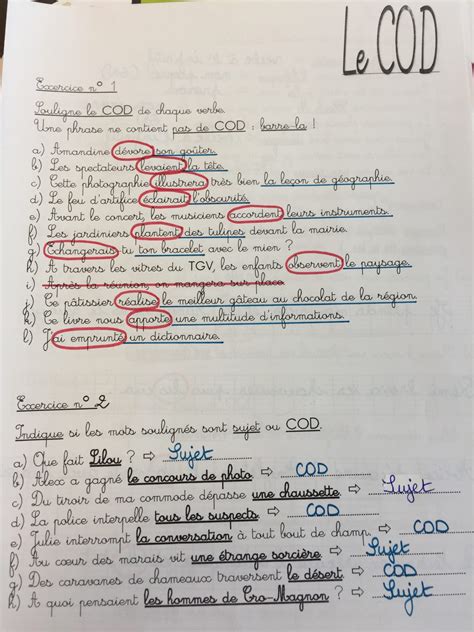 Le COD
Exercice n° 1
Souligne le COD de chaque verbe.
Une phrase ne contient pas de COD : barre-la !
a) Amandine dévore son goûter.
b) Les spectateurs levaient la tête.
c) Cette photographie illustrera très bien la leçon de géographie.
d) Le feu d'artifice éclairait l'obscurité.
e) Avant le concert, les musiciens accordent leurs instruments.
f) Les jardiniers plantent des tulipes devant la mairie.
g) Échangerais tu ton bracelet avec le mien ?
h) A travers les vitres du TGV, les enfants observent le paysage.
i) Après la réunion, on mangera sur place
j) Ce pâtissier réalise le meilleur gâteau au chocolat de la région.
k) Ce livre nous apporte une multitude d'informations.
l) J'ai emprunté un dictionnaire.
Exercice n° 2
Indique si les mots soulignés sont sujet ou COD.
a) Que fait Lilou ? ⇨ Sujet
b) Alex a gagné le concours de photo. ⇨ COD
c) Du tiroir de ma commode dépasse une chaussette ⇨ Sujet
d) La police interpelle tous les suspects. ⇨ COD
e) Julie interrompt la conversation à tout bout de champ. ⇨ COD
f) Au cœur des marais vit une étrange sorcière. ⇨ Sujet
g) Des caravanes de chameaux traversent le désert. ⇨ COD
h) A quoi pensaient les hommes de Cro-Magnon ? ⇨ Sujet